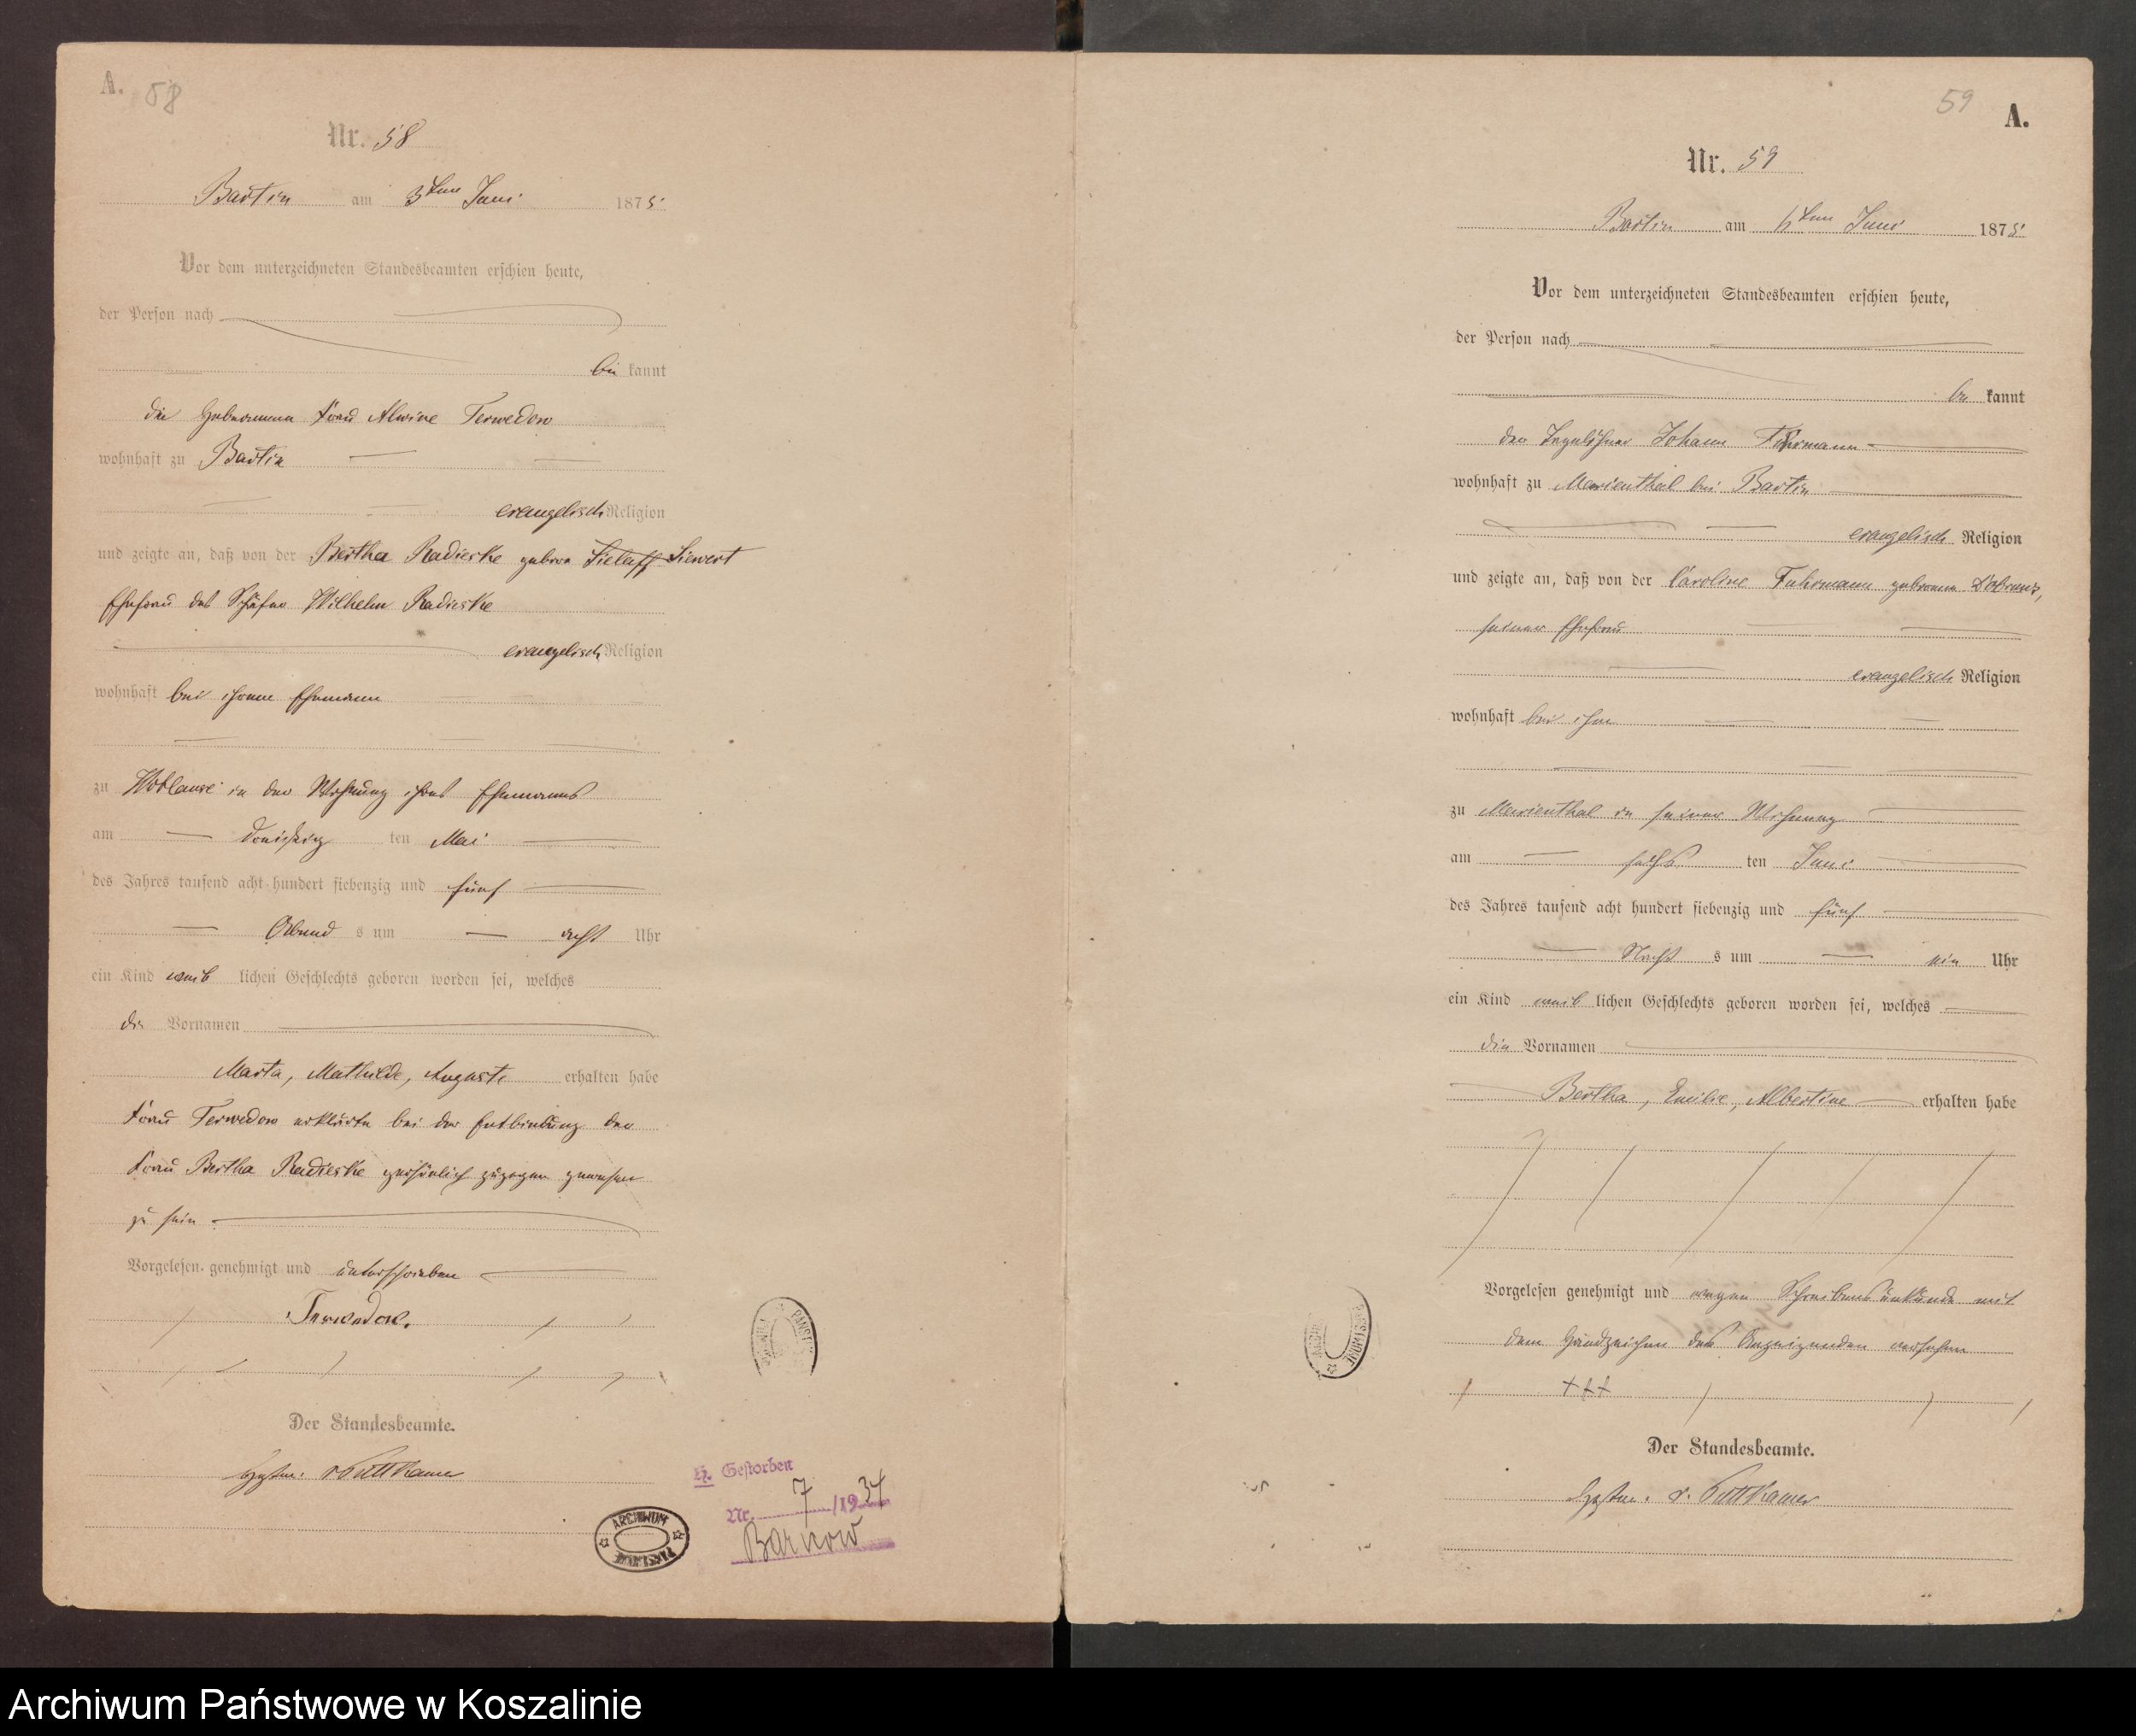 A. 58
Nr. 58
Bartin am 3ten Juni 1875.
Vor dem unterzeichneten Standesbeamten erschien heute,
der Person nach
be kannt
die Hebamme Frau Alwine Terwedow
wohnhaft zu Bartin
evangelisch Religion
und zeigte an, daß von der Bertha Radieske geborn Sielaff Siewert
Ehefrau des Schäfer Wilhelm Radieske
evangelisch Religion
wohnhaft bei ihrem Ehemann
zu in der Wohnung ihres Ehemanns
am dreißig ten Mai
des Jahres tausend acht hundert siebenzig und fünf
Abend s um acht Uhr
ein Kind weib lichen Geschlechts geboren worden sei, welches
die Vornamen
Marta, Mathilde, Auguste erhalten habe
Frau Terwedow erklärte bei der Entbindung der
Frau Bertha Radieske persönlich zugegen gewesen
zu sein
Vorgelesen, genehmigt und unterschrieben
Terwedow.
Der Standesbeamte.
v Puttkamer
H. Gestorben
Nr. 7 /1934
Barnow
ARCHIWUM
PAŃSTWOWE
59
A.
Nr. 59
Bartin am 6ten Juni 1875
Vor dem unterzeichneten Standesbeamten erschien heute,
der Person nach
be kannt
der Johann Fuhrmann
wohnhaft zu Marienthal bei Bartin
evangelisch Religion
und zeigte an, daß von der Caroline Fuhrmann geborene
seiner Ehefrau
evangelisch Religion
wohnhaft bei ihm
zu Marienthal in seiner Wohnung
am sechs ten Juni
des Jahres tausend acht hundert siebenzig und fünf
Nacht s um ein Uhr
ein Kind weib lichen Geschlechts geboren worden sei, welches
die Vornamen
Bertha, Emilie, Albertine erhalten habe
Vorgelesen genehmigt und wegen Schreibensunkunde mit
dem Handzeichen des Anzeigenden versehen
+++
Der Standesbeamte.
v. Puttkamer
Archiwum Państwowe w Koszalinie